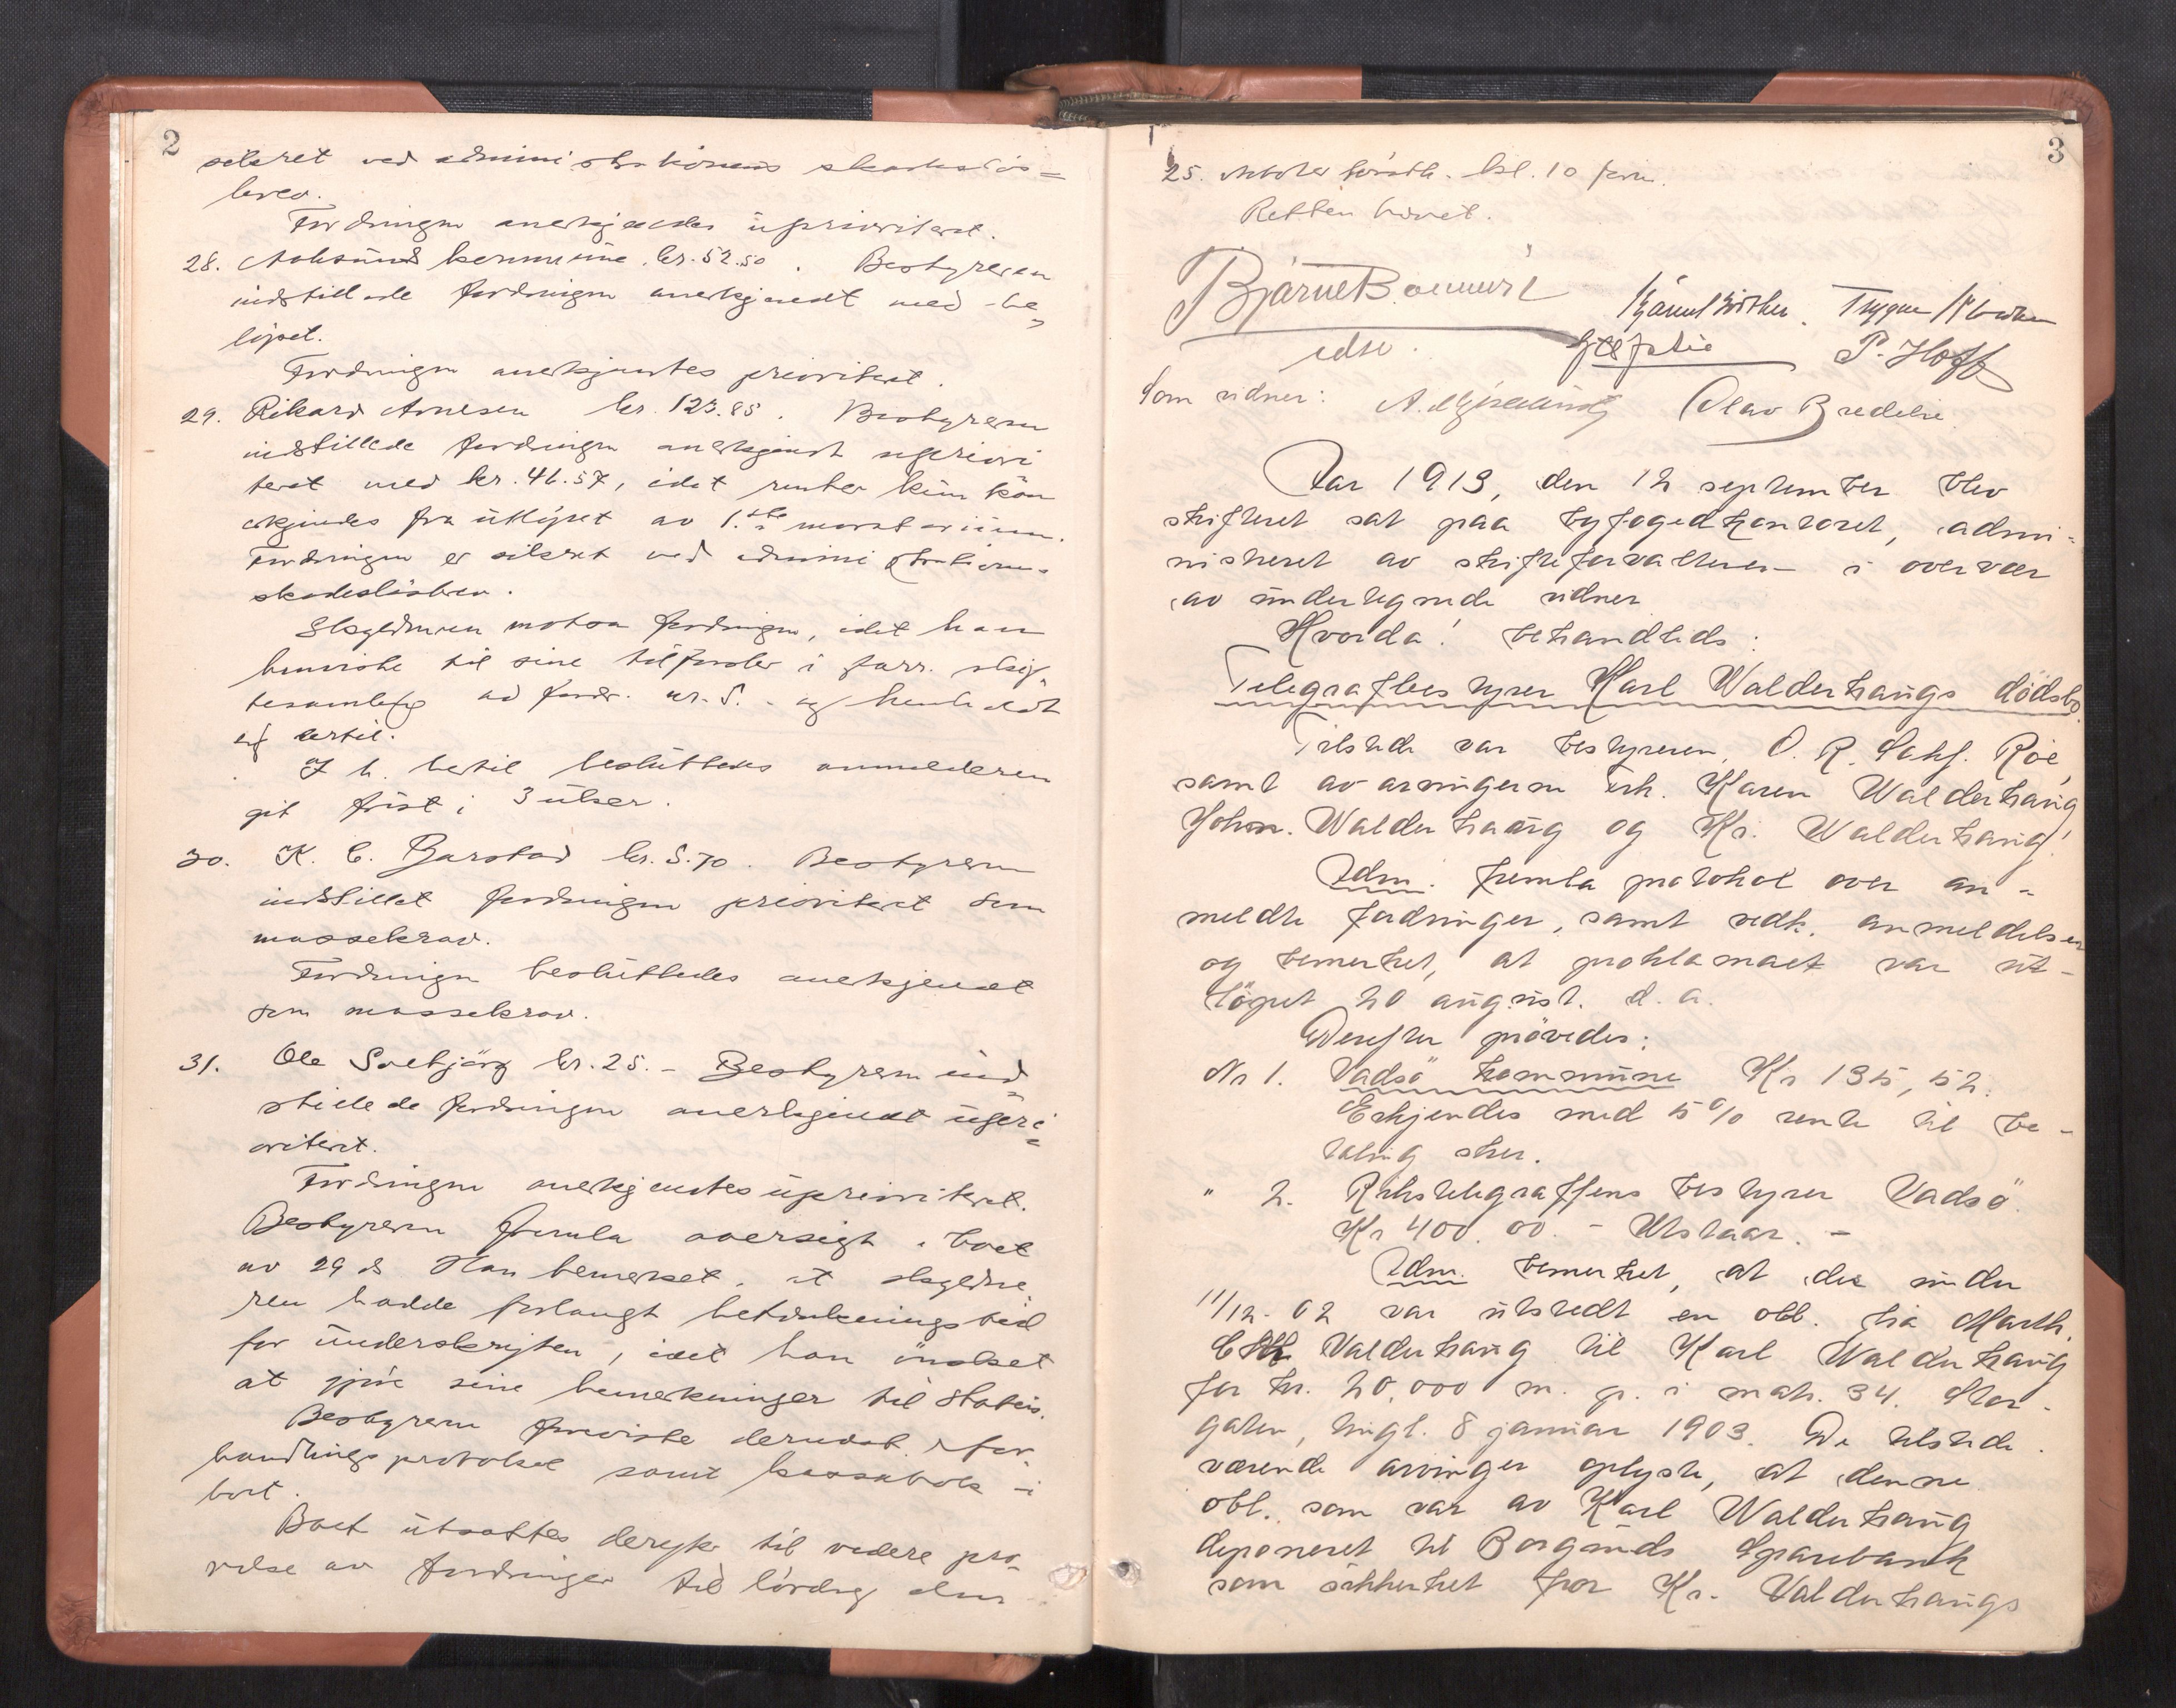 2
sikret ved administrationens skadesløs=
brev.
Fordringen anerkjendes uprioritert.
28. Aalesunds kommune kr. 52.50. Bestyreren
indstillede fordringen anerkjendt med be-
løpet.
Fordringen anerkjentes prioritert.
29. Rikard Arnesen kr. 123.85. Bestyreren
indstillede fordringen anerkjendt upriori
teret med kr. 46.57, idet renter kun kan
erkjendes fra utløpet av 1.ste moratorium.
Fordringen er sikret ved administrations-
skadesløsbrev.
Skyldneren motsa fordringen, idet han
henviste til sine tilførsler i forr. skif-
tesamling ad fordr. nr. 5. og henholdt
sig dertil.
I h. hertil besluttedes anmelderen
git frist i 3 uker.
30. K. C. Barstad kr. 5.70. Bestyreren
indstillet fordringen prioritert som
massekrav.
Fordringen besluttedes anerkjendt
som massekrav.
31. Ole Solbjørg kr. 25.- Bestyreren ind
stillede fordringen anerkjendt upri=
oritert.
Fordringen anerkjentes uprioritert.
Bestyreren fremla oversigt i boet
av 29 ds Han bemerket, at skyldne
ren hadde forlangt betænkningstid
for underskriften, idet han ønsket
at gjøre sine bemerkninger til status.
Bestyreren foreviste dernæst for-
handlingsprotokol samt kassabok i
boet.
Boet utsattes derefter til videre prø-
velse av fordringer til lørdag den
3
25. oktober førstk. kl. 10 form.
Retten hævet.
Bjarne
Trygve
edsv. P. Hoff
Som vidner: Olav Bredeli
Aar 1913, den 12 september blev
skifteret sat paa byfogedkontoret, admi-
nistreret av skifteforvalteren i overvær
av undertegnede vidner
Hvorda! behandleds:
Telegrafbestyrer Karl Walderhaugs dødsbo.
Tilstede var bestyreren, O. R. Sakf. Roe,
samt av arvingerne Frk. Karen Walderhaug,
Johan. Walderhaug og Kr. Walderhaug.
Adm. fremla protokol over an-
meldte fordringer, samt vedk. anmeldelser
og bemerket, at proklamaet var ut-
løpet 20 august. d. a.
Derefter prøvedes:
Nr 1. Vadsö kommune Kr 135,52.
Erkjendes med 5% rente til be-
taling sker.
" 2. Rikstelegraffens bestyrer Vadsö.
Kr 400.00. - Utstaar. -
Adm. bemerket, at der under
11/12-02 var utstedt en obl. fra Marth.
Walderhaug til Karl Walderhaug
for kr. 20,000 m. p. i matr. 34. Stor-
gaten, tingl. 8 januar 1903. De tilstede
værende arvinger oplyste, at denne
obl. som var av Karl Walderhaug
deponeret til Borgunds Sparebank
som sikkerhet for Kr. Valderhaugs